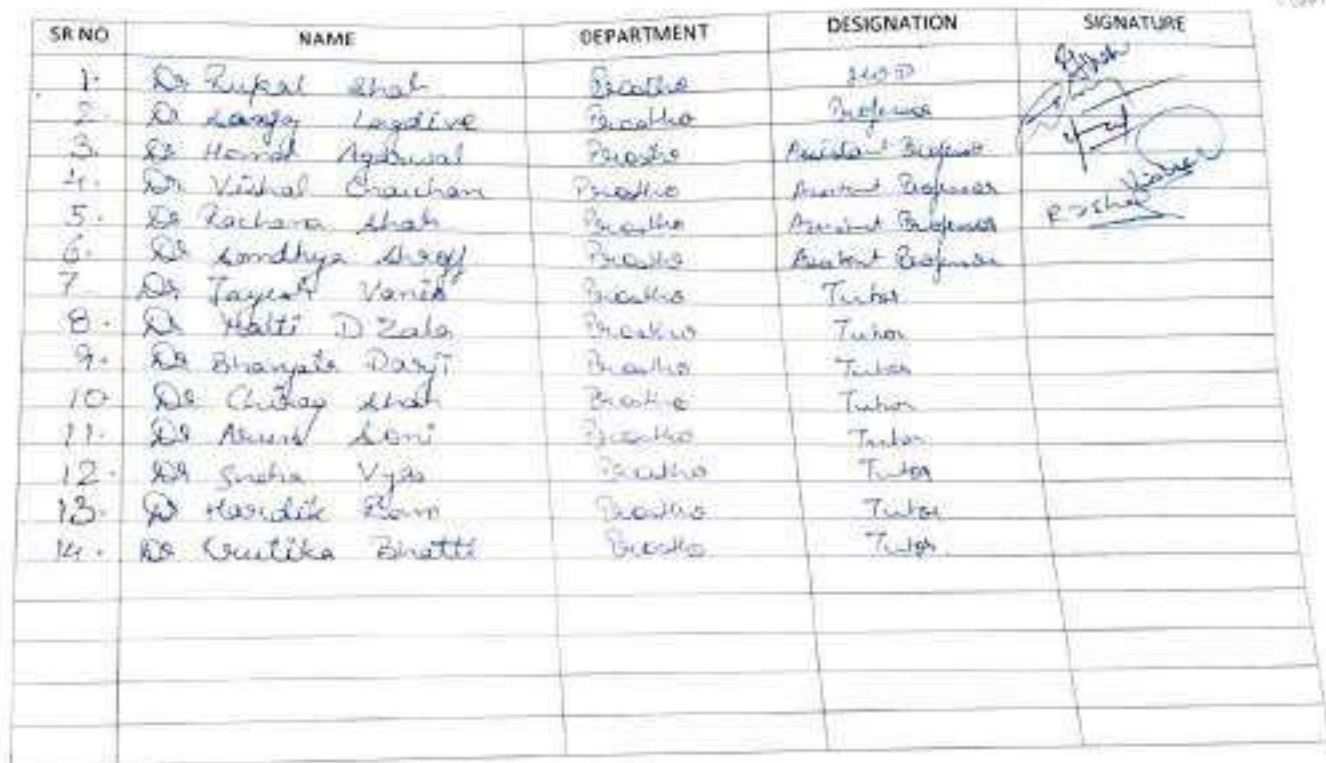 SR NO NAME DEPARTMENT DESIGNATION SIGNATURE
1. Dr Rupal Shah Prostho HOD
2. Dr Sanjay Lagdive Prostho Professor
3. Dr Agarwal Prostho Assistant Professor
4. Dr Vishal Chauhan Prostho Assistant Professor
5. Dr Rachana Shah Prostho Assistant Professor R J Shah
6. Dr Sandhya Shroff Prostho Assistant Professor
7. Dr Jayesh Prostho Tutor
8. Dr Malti D Zala Prostho Tutor
9. Dr Darji Prostho Tutor
10. Dr Chirag Shah Prostho Tutor
11. Dr Soni Prostho Tutor
12. Dr Sneha Vyas Prostho Tutor
13. Dr Hardik Ram Prostho Tutor
14. Dr Krutika Bhatti Prostho Tutor